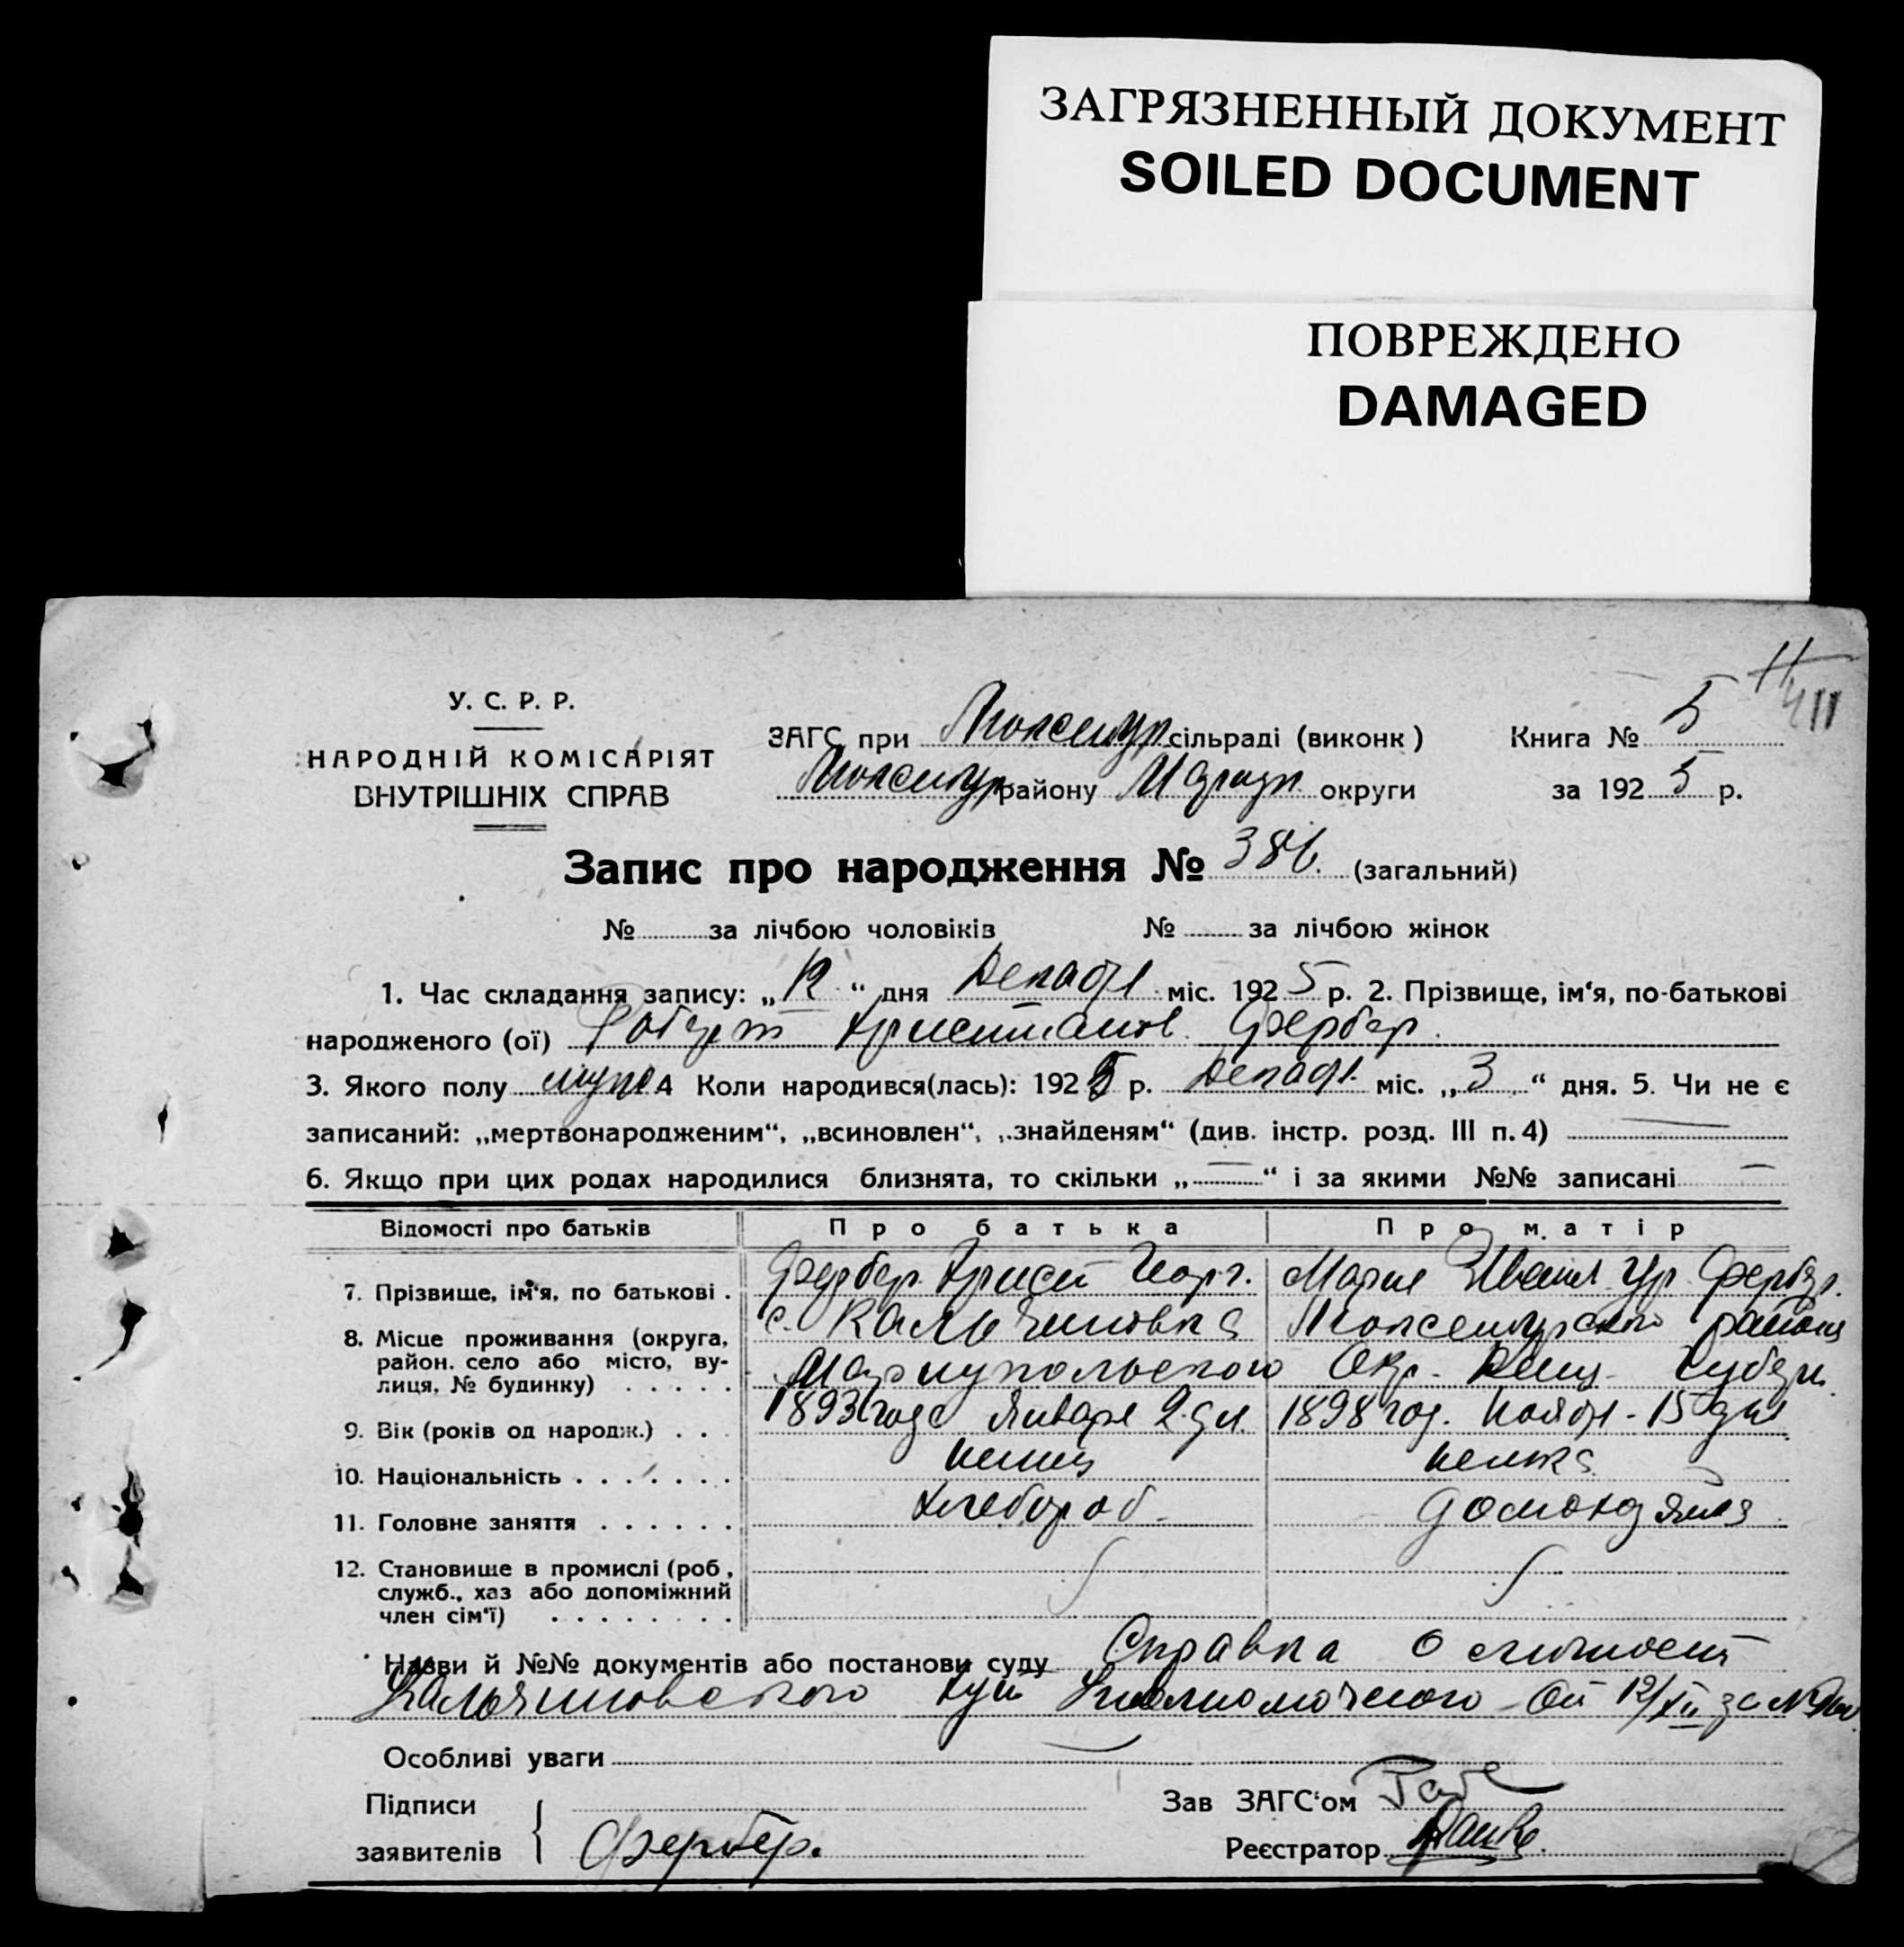 ЗАГРЯЗНЕННЫЙ ДОКУМЕНТ
SOILED DOCUMENT
ПОВРЕЖДЕНО
DAMAGED
У. С. Р. Р.
НАРОДНІЙ КОМІСАРІЯТ
ВНУТРІШНІХ СПРАВ
ЗАГС при Люксембур сільраді (виконк) Книга № 5
Люксембур району Мариуп округи за 1925 р.
Запис про народження № 386. (загальний)
№ за лічбою чоловіків № за лічбою жінок
1. Час складання запису: „12“ дня Декабря міс. 1925 р. 2. Прізвище, ім‘я, по-батькові
народженого (ої) Роберт Христианов. Фербер.
3. Якого полу муж 4 Коли народився(лась): 1925 р. Декабр. міс. „3“ дня. 5. Чи не є
записаний: „мертвонародженим“, „всиновлен“, „знайденям“ (див. інстр. розд. III п. 4) —
6. Якщо при цих родах народилися близнята, то скільки „—“ і за якими №№ записані —
Відомості про батьків Про батька Про матір
7. Прізвище, ім‘я, по батькові . Фербер Христ Георг. Мария Иван. Ур. Фербер.
8. Місце проживання (округа, с. Кальчиновка Люксембурского района
район. село або місто, ву-
лиця, № будинку) . . . . . Мариупольского Окр. Донец. Губерн.
9. Вік (років од народж.) . . . 1893 года Января 2 дня. 1898 год. Ноября - 15 дня
10. Національність . . . . . . . немец немка
11. Головне заняття . . . . . . Хлебороб - домохозяйка
12. Становище в промислі (роб ,
служб., хаз або допоміжний
член сім‘ї) . . . . . . . .
Назви й №№ документів або постанови суду Справка о личност
Кальчиновского Хут Уполномоченого От 12/XII за №
Особливі уваги —
Підписи
заявителів Фербер.
Зав ЗАГС‘ом
Реєстратор